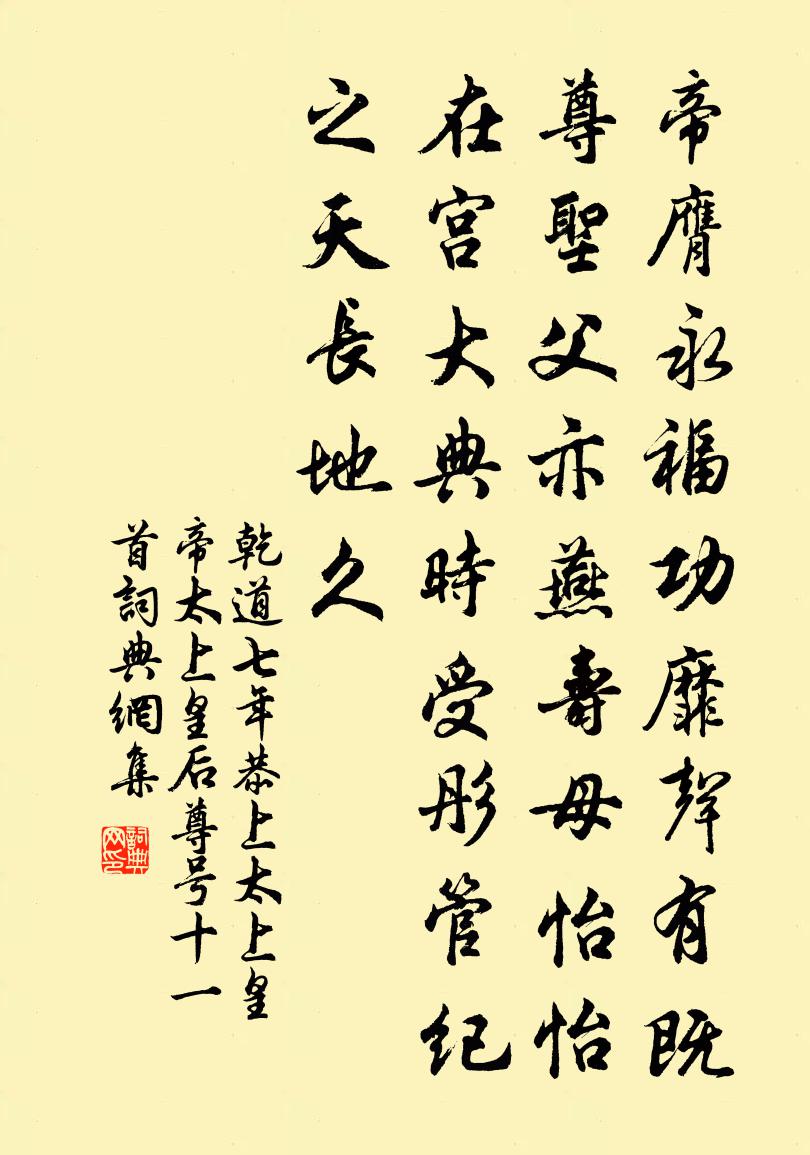 帝膺永福功靡聲有既
尊聖父亦燕壽母怡怡
在宮大典時受彤管紀
之天長地久
乾道七年恭上太上皇
帝太上皇后尊号十一
首詞典網集
詞典网印